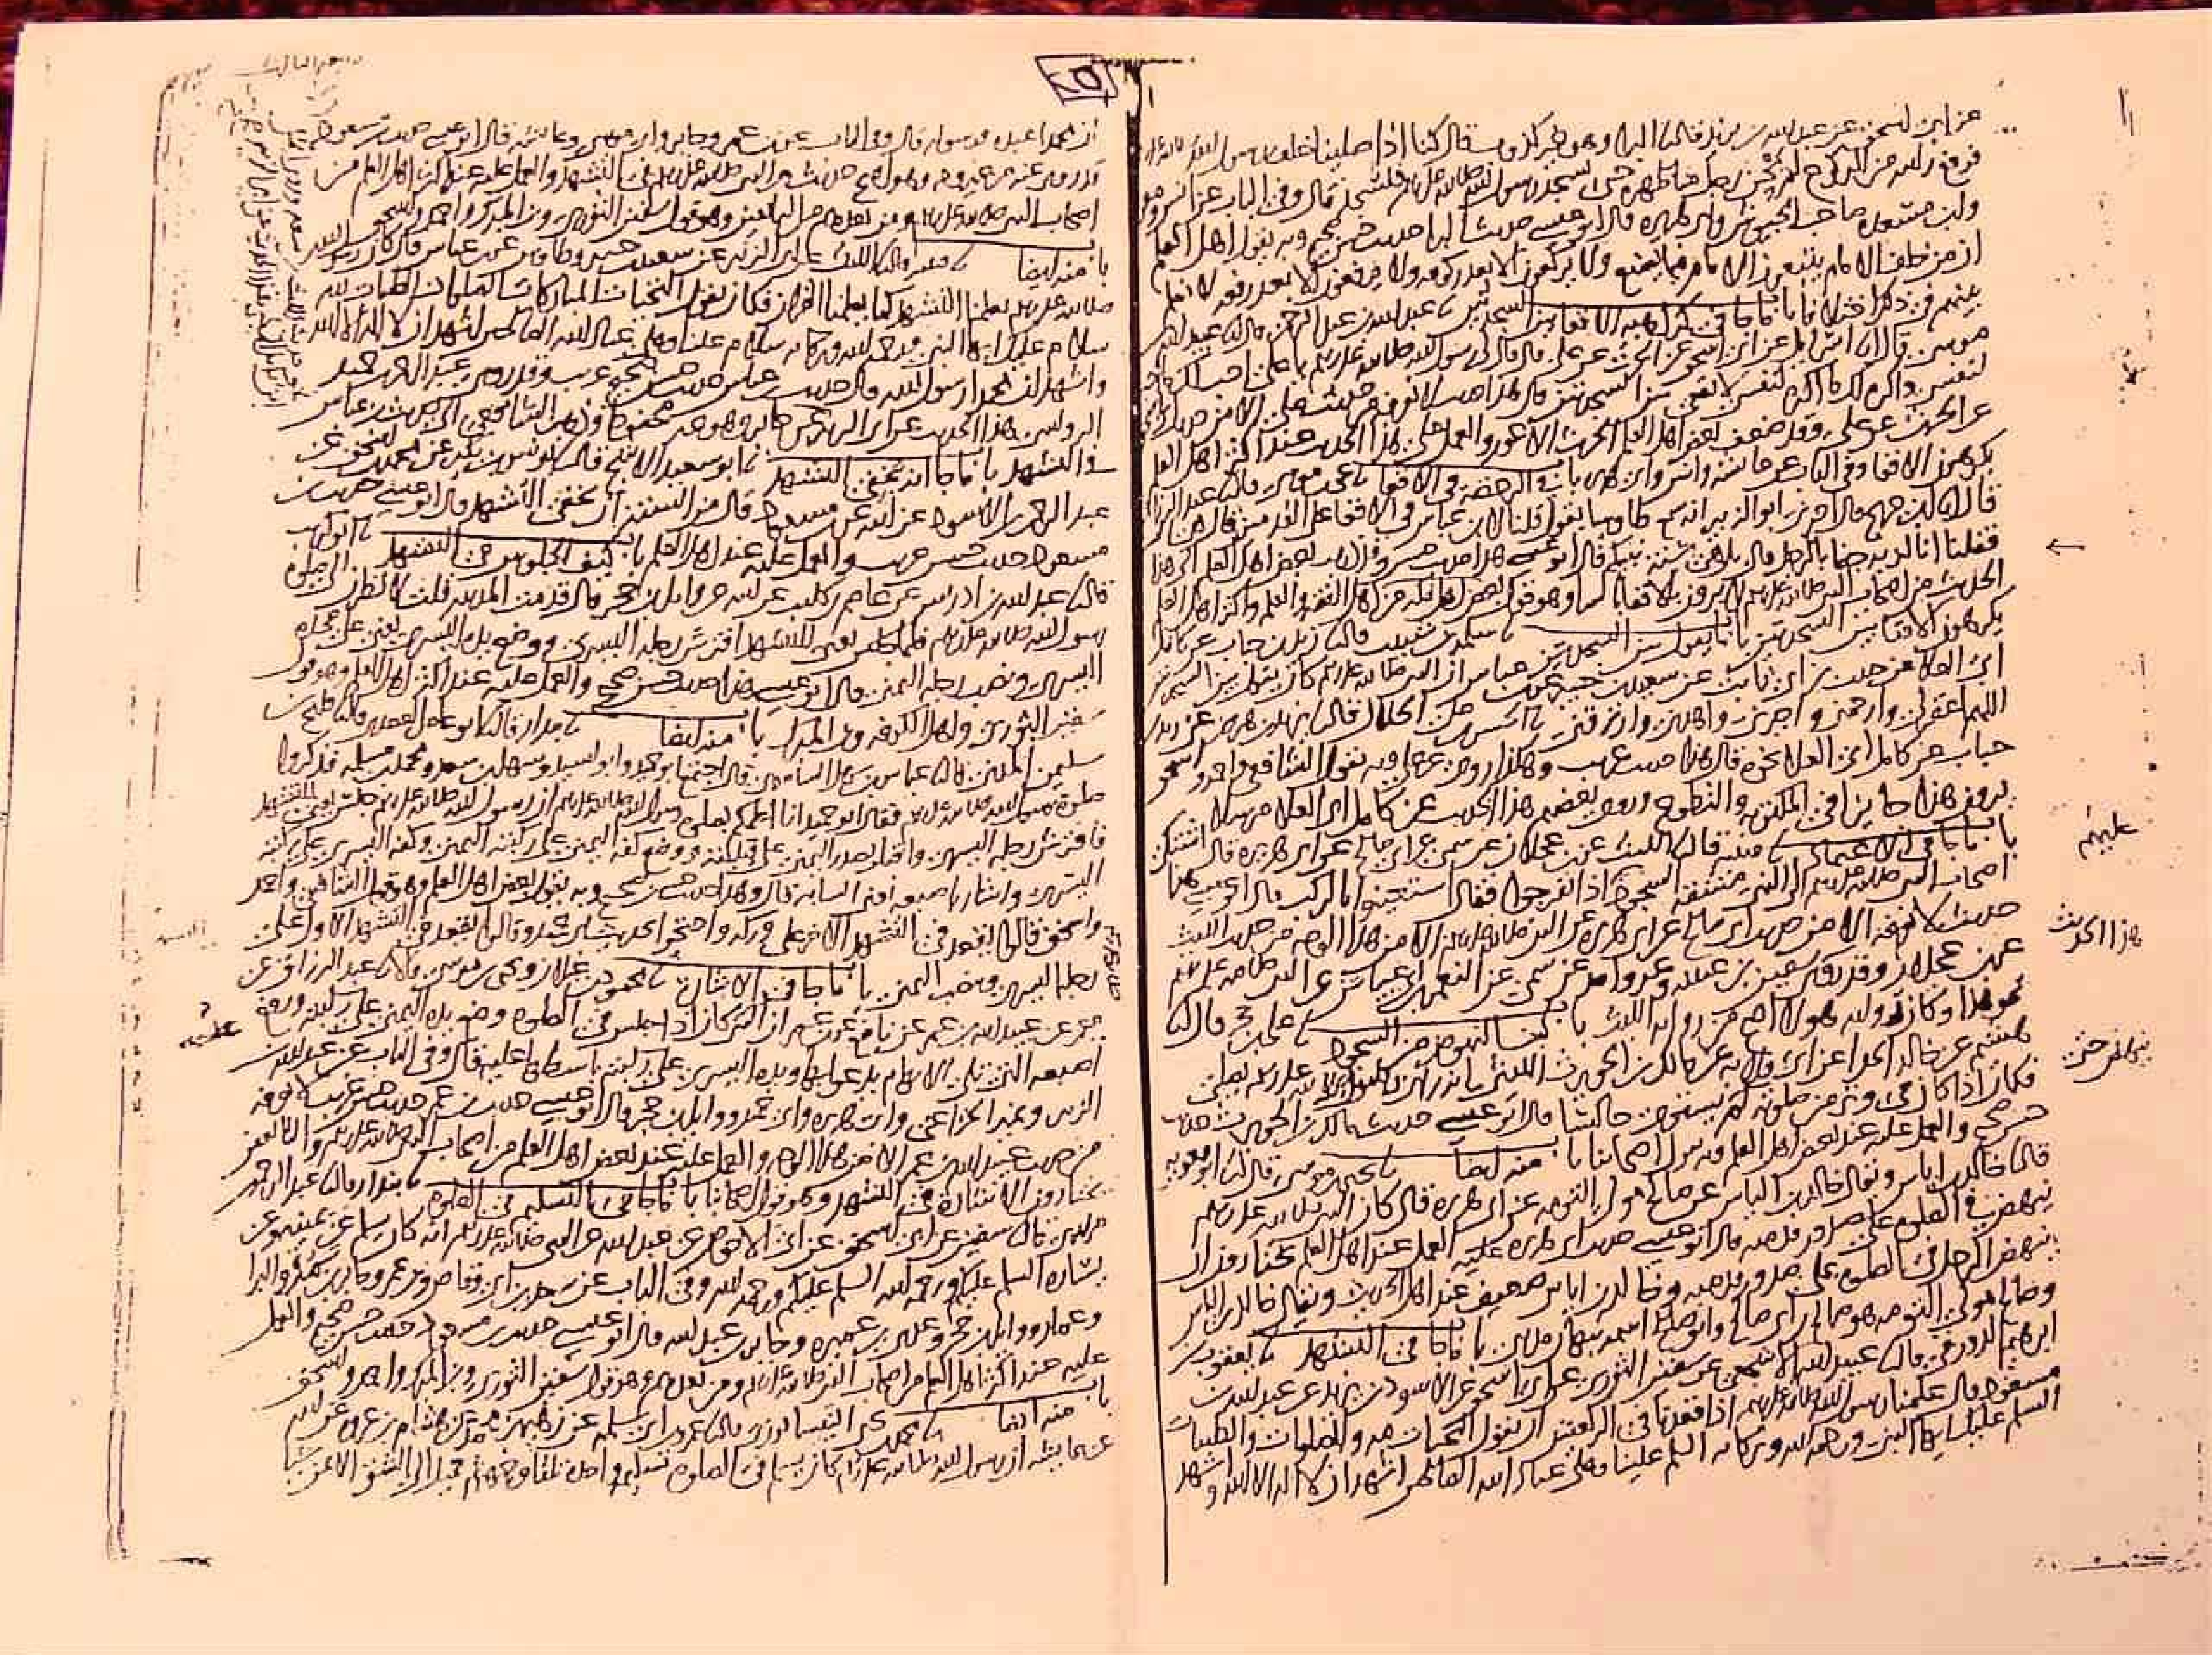 عن ابن اسحق عن عبد الله بن يزيد قال نا البرا وهو غير كذوب قال كنا اذا صلينا خلف رسول الله
فرفع راسه من الركوع لم يحن رجل منا ظهره حتى يسجد رسول الله صلى الله عليه وسلم فنسجد قال وفي الباب عن انس ومعوية
وابن مسعدة صاحب الجيوش وابي هريرة قال ابو عيسى حديث البرا حديث حسن صحيح وبه يقول اهل العلم
ان من خلف الامام يتبعون الامام فيما يصنع ولا يركعون الا بعد ركوعه ولا يرفعون الا بعد رفعه لا نعلم
بينهم في ذلك اختلافا باب ما جا في كراهية الاقعا بين السجدتين نا عبد الله بن عبد الرحمن قال نا عبيد الله بن
موسى قال نا اسرايل عن ابي اسحق عن الحرث عن علي قال قال لي رسول الله صلى الله عليه وسلم يا علي احب لك ما احب
لنفسي واكره لك ما اكره لنفسي لا تقع بين السجدتين قال هذا حديث لا نعرفه من حديث علي الا من حديث ابي
عن الحرث عن علي وقد ضعف بعض اهل العلم الحرث الاعور والعمل على هذا الحديث عند اكثر اهل العلم
يكرهون الاقعا وفي الباب عن عايشة وانس وابي هريرة باب في الرخصة في الاقعا نا يحيى بن موسى قال نا عبد الرزاق
قال انا ابن جريج قال اخبرني ابو الزبير انه سمع طاوسا يقول قلنا لابن عباس في الاقعا على القدمين قال هي السنة
فقلنا انا لنراه جفا بالرجل قال بل هي سنة نبيكم قال ابو عيسى هذا حديث حسن وقد ذهب بعض اهل العلم الى هذا
الحديث من اصحاب النبي صلى الله عليه وسلم لا يرون بالاقعا باسا وهو قول بعض اهل مكة من اهل الفقه والعلم واكثر اهل العلم
يكرهون الاقعا بين السجدتين باب ما يقول بين السجدتين نا سلمة بن شبيب قال نا زيد بن حباب عن كامل
ابي العلا عن حبيب بن ابي ثابت عن سعيد بن جبير عن ابن عباس ان النبي صلى الله عليه وسلم كان يقول بين السجدتين
اللهم اغفر لي وارحمني واجبرني واهدني وارزقني نا الحسن بن علي الخلال قال نا يزيد بن هرون عن زيد بن
حباب عن كامل ابي العلا نحوه قال هذا حديث غريب وهكذا روي عن علي وبه يقول الشافعي واحمد واسحق
يرون هذا جايزا في المكتوبة والتطوع وروى بعضهم هذا الحديث عن كامل ابي العلا مرسلا
باب ما جا في الاعتماد نا قتيبة قال نا الليث عن ابن عجلان عن سمي عن ابي صالح عن ابي هريرة قال اشتكى
اصحاب النبي صلى الله عليه وسلم الى النبي مشقة السجود اذا تفرجوا فقال استعينوا بالركب قال ابو عيسى هذا
حديث لا نعرفه الا من حديث ابي صالح عن ابي هريرة عن النبي صلى الله عليه وسلم الا من هذا الوجه من حديث الليث
عن ابن عجلان وقد روى سفين بن عيينة وغير واحد عن سمي عن النعمن بن ابي عياش عن النبي صلى الله عليه وسلم
نحو هذا وكان رواية هولا اصح من رواية الليث باب كيف النهوض من السجود نا علي بن حجر قال انا
هشيم عن خالد الحذا عن ابي قلابة عن مالك بن الحويرث الليثي انه راى رسول الله صلى الله عليه وسلم يصلي
فكان اذا كان في وتر من صلوته لم ينهض حتى يستوي جالسا قال ابو عيسى حديث مالك بن الحويرث حديث
حسن صحيح والعمل عليه عند بعض اهل العلم وبه يقول اصحابنا باب منه ايضا نا يحيى بن موسى قال نا ابو معوية
قال نا خالد بن اياس ويقال خالد بن الياس عن صالح مولى التوءمة عن ابي هريرة قال كان النبي صلى الله عليه وسلم
ينهض في الصلوة على صدور قدميه قال ابو عيسى حديث ابي هريرة عليه العمل عند اهل العلم يختارون ان
ينهض الرجل في الصلوة على صدور قدميه وخالد بن اياس ضعيف عند اهل الحديث ويقال خالد بن الياس
وصالح مولى التوءمة هو صالح بن ابي صالح وابو صالح اسمه نبهان مديني باب ما جا في التشهد نا يعقوب بن
ابرهيم الدورقي قال نا عبيد الله الاشجعي عن سفين الثوري عن ابي اسحق عن الاسود بن يزيد عن عبد الله بن
مسعود قال علمنا رسول الله صلى الله عليه وسلم اذا قعدنا في الركعتين ان نقول التحيات لله والصلوات والطيبات
السلم عليك ايها النبي ورحمة الله وبركاته السلم علينا وعلى عباد الله الصالحين اشهد ان لا اله الا الله واشهد
عليه
هذا الحديث
ينهض حتى
ان محمدا عبده ورسوله قال وفي الباب عن ابن عمر وجابر وابي موسى وعايشة قال ابو عيسى حديث ابن مسعود
قد روي عنه من غير وجه وهو اصح حديث عن النبي صلى الله عليه وسلم في التشهد والعمل عليه عند اكثر اهل العلم من
اصحاب النبي صلى الله عليه وسلم ومن بعدهم من التابعين وهو قول سفين الثوري وابن المبرك واحمد واسحق
باب منه ايضا نا قتيبة قال نا الليث عن ابي الزبير عن سعيد بن جبير وطاوس عن ابن عباس قال كان رسول الله
صلى الله عليه وسلم يعلمنا التشهد كما يعلمنا القران فكان يقول التحيات المباركات الصلوات الطيبات لله
سلام عليك ايها النبي ورحمة الله وبركاته سلام علينا وعلى عباد الله الصالحين اشهد ان لا اله الا الله
واشهد ان محمدا رسول الله قال حديث ابن عباس حديث حسن صحيح غريب وقد روى عبد الرحمن بن حميد
الرواسي هذا الحديث عن ابي الزبير نحوه وروى ايمن عن جابر وهو غير محفوظ وذهب الشافعي الى حديث ابن عباس
في التشهد باب ما جا انه يخفي التشهد نا ابو سعيد الاشج قال نا يونس بن بكير عن محمد بن اسحق عن
عبد الرحمن بن الاسود عن ابيه عن ابن مسعود قال من السنة ان يخفي التشهد قال ابو عيسى حديث ابن
مسعود حديث حسن غريب والعمل عليه عند اهل العلم باب كيف الجلوس في التشهد نا ابو كريب
قال نا عبد الله بن ادريس عن عاصم بن كليب عن ابيه عن وايل بن حجر قال قدمت المدينة قلت لانظرن الى صلوة
رسول الله صلى الله عليه وسلم فلما جلس يعني للتشهد افترش رجله اليسرى ووضع يده اليسرى يعني على فخذه
اليسرى ونصب رجله اليمنى قال ابو عيسى هذا حديث حسن صحيح والعمل عليه عند اكثر اهل العلم وهو قول
سفين الثوري واهل الكوفة وابن المبرك باب منه ايضا نا بندار قال نا ابو عامر العقدي قال نا فليح بن
سليمن المدني قال نا عباس بن سهل الساعدي قال اجتمع ابو حميد وابو اسيد وسهل بن سعد ومحمد بن مسلمة فذكروا
صلوة رسول الله صلى الله عليه وسلم فقال ابو حميد انا اعلمكم بصلوة رسول الله صلى الله عليه وسلم ان رسول الله صلى الله عليه وسلم جلس يعني للتشهد
فافترش رجله اليسرى واقبل بصدر اليمنى على قبلته ووضع كفه اليمنى على ركبته اليمنى وكفه اليسرى على ركبته
اليسرى واشار باصبعه يعني السبابة قال وهذا حديث حسن صحيح وبه يقول بعض اهل العلم وهو قول الشافعي واحمد
واسحق قالوا يقعد في التشهد الاخر على وركه واحتجوا بحديث ابي حميد وقالوا يقعد في التشهد الاول على
رجله اليسرى وينصب اليمنى باب ما جا في الاشارة نا محمود بن غيلان ويحيى بن موسى قالا نا عبد الرزاق عن
معمر عن عبيد الله بن عمر عن نافع عن ابن عمر ان النبي كان اذا جلس في الصلوة وضع يده اليمنى على ركبته ورفع
اصبعه التي تلي الابهام يدعو بها ويده اليسرى على ركبته باسطها عليه قال وفي الباب عن عبد الله بن
الزبير ونمير الخزاعي وابي هريرة وابي حميد ووايل بن حجر قال ابو عيسى حديث ابن عمر حديث حسن غريب لا نعرفه
من حديث عبيد الله بن عمر الا من هذا الوجه والعمل عليه عند بعض اهل العلم من اصحاب النبي صلى الله عليه وسلم والتابعين
يختارون الاشارة في التشهد وهو قول اصحابنا باب ما جا في التسليم في الصلوة نا بندار قال نا عبد الرحمن
بن مهدي قال نا سفين عن ابي اسحق عن ابي الاحوص عن عبد الله عن النبي صلى الله عليه وسلم انه كان يسلم عن يمينه وعن
يساره السلم عليكم ورحمة الله السلم عليكم ورحمة الله وفي الباب عن سعد بن ابي وقاص وابن عمر وجابر بن سمرة والبرا
وعمار ووايل بن حجر وعدي بن عميرة وجابر بن عبد الله قال ابو عيسى حديث ابن مسعود حديث حسن صحيح والعمل
عليه عند اكثر اهل العلم من اصحاب النبي صلى الله عليه وسلم ومن بعدهم وهو قول سفين الثوري وابن المبرك واحمد واسحق
باب منه ايضا نا محمد بن يحيى النيسابوري قال نا عمرو بن ابي سلمة عن زهير بن محمد عن هشام بن عروة عن ابيه
عن عايشة ان رسول الله صلى الله عليه وسلم كان يسلم في الصلوة تسليمة واحدة تلقا وجهه ثم يميل الى الشق الايمن شيا
عليه